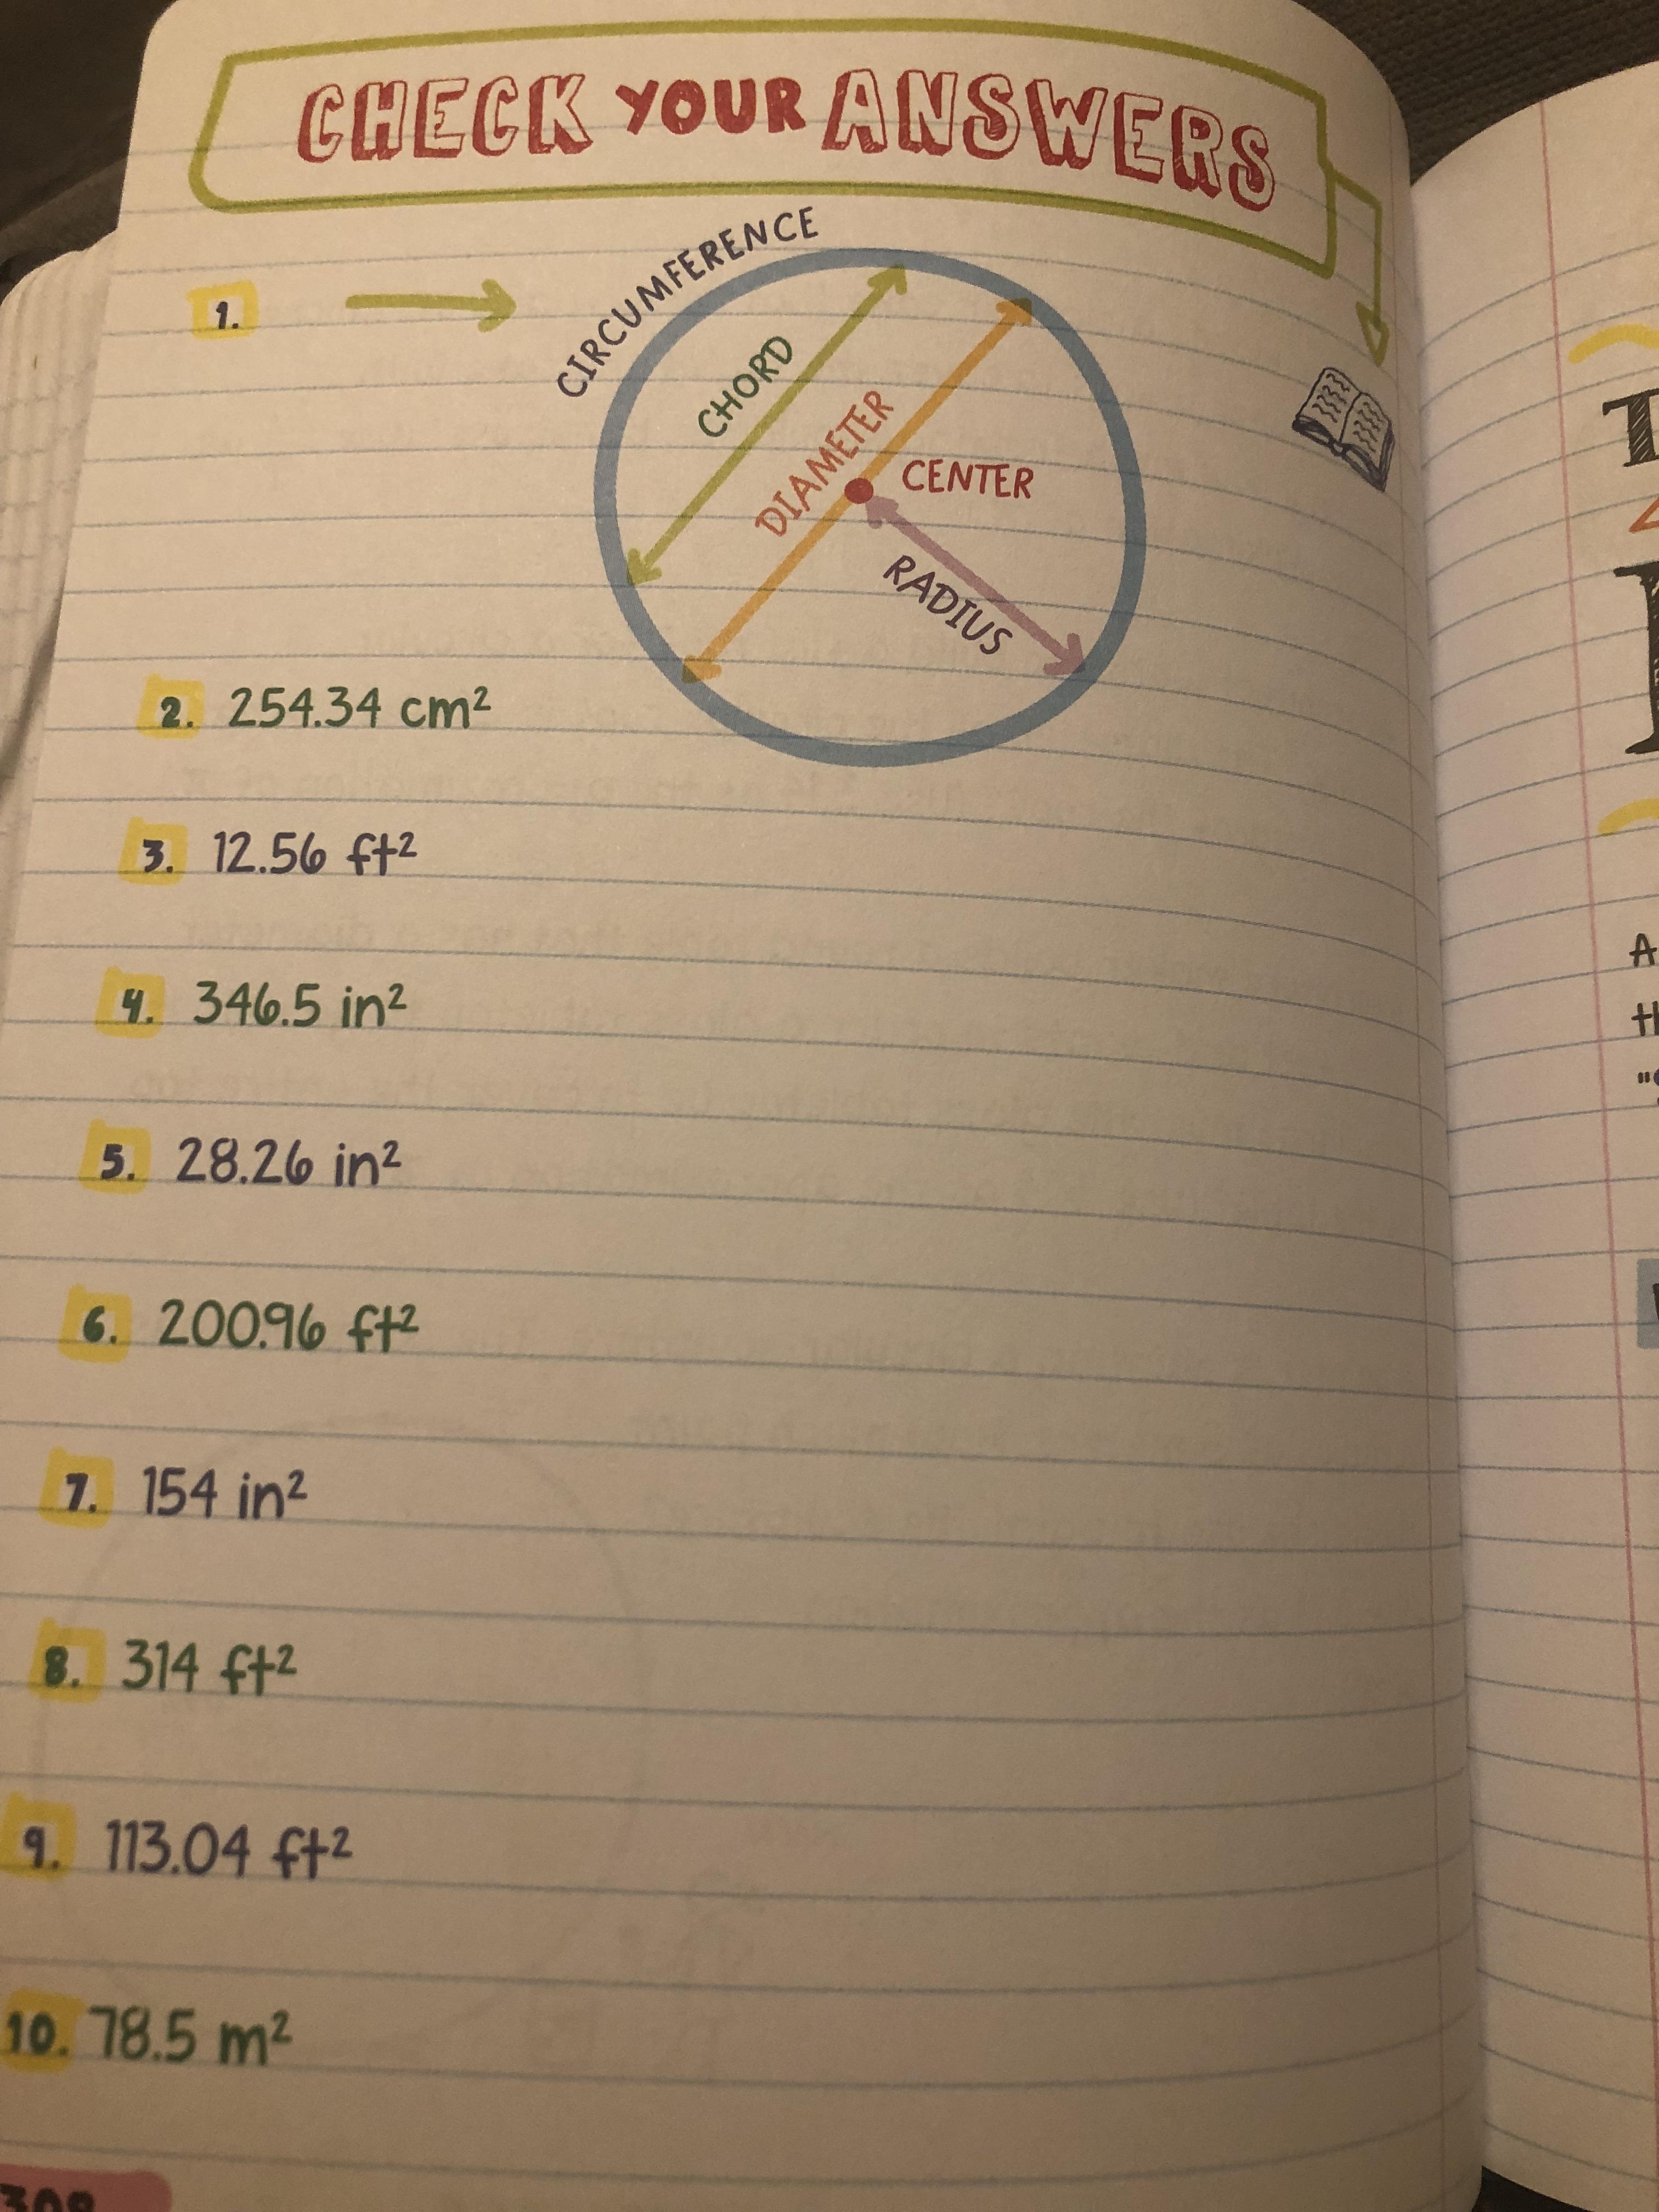 CHECK YOUR ANSWERS
1.
CIRCUMFERENCE
CHORD
DIAMETER
CENTER
RADIUS
2. 254.34 cm²
3. 12.56 ft²
4. 346.5 in²
5. 28.26 in²
6. 200.96 ft²
7. 154 in²
8. 314 ft²
9. 113.04 ft²
10. 78.5 m²
308